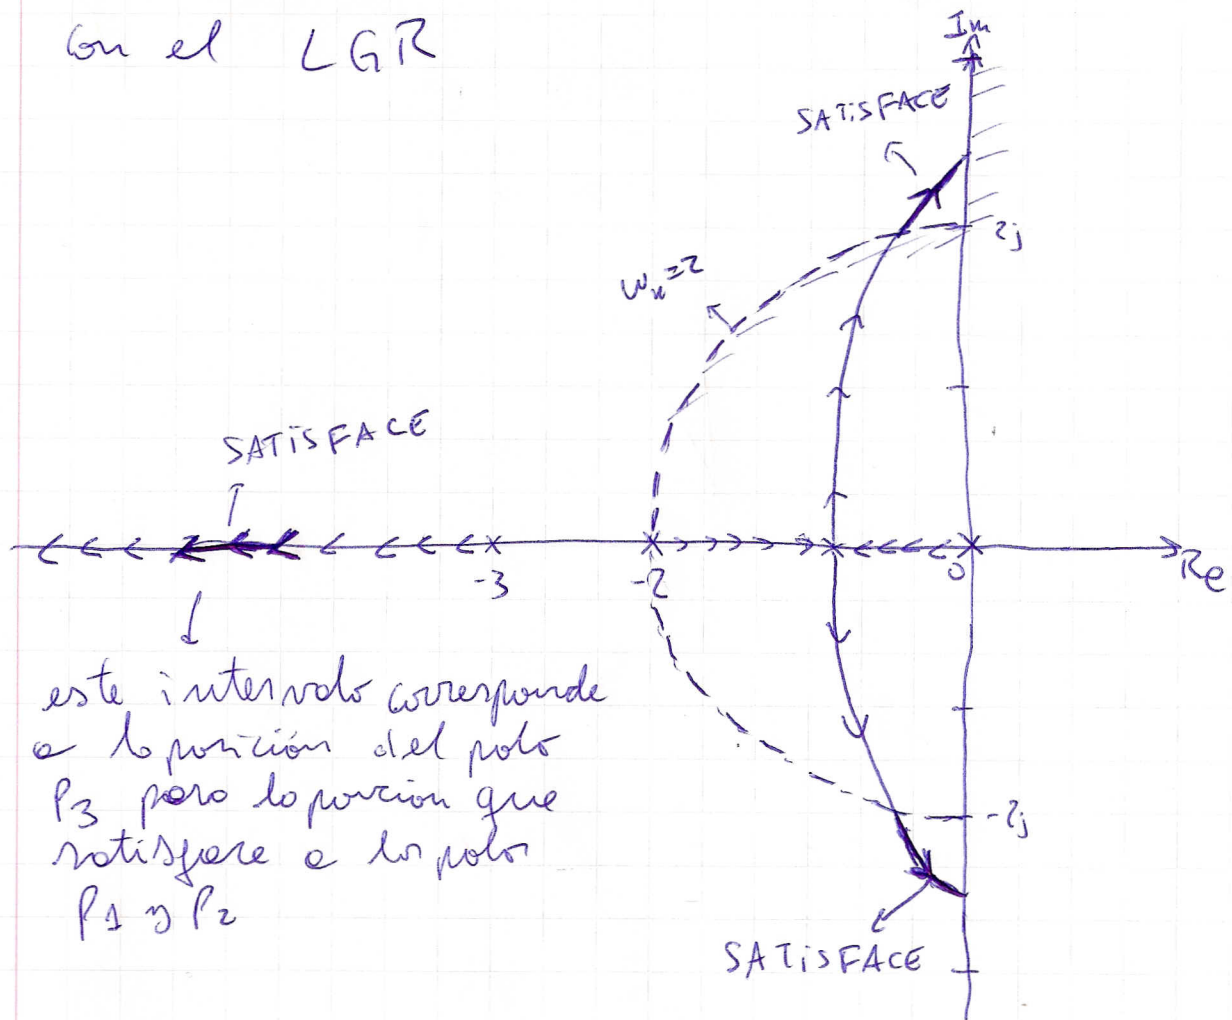 Con el LGR
Im
SATISFACE
2j
wn=2
SATISFACE
-3
-2
0
Re
este intervalo corresponde
a la posición del polo
P3 para la porción que
satisface a los polos
P1 y P2
-2j
SATISFACE